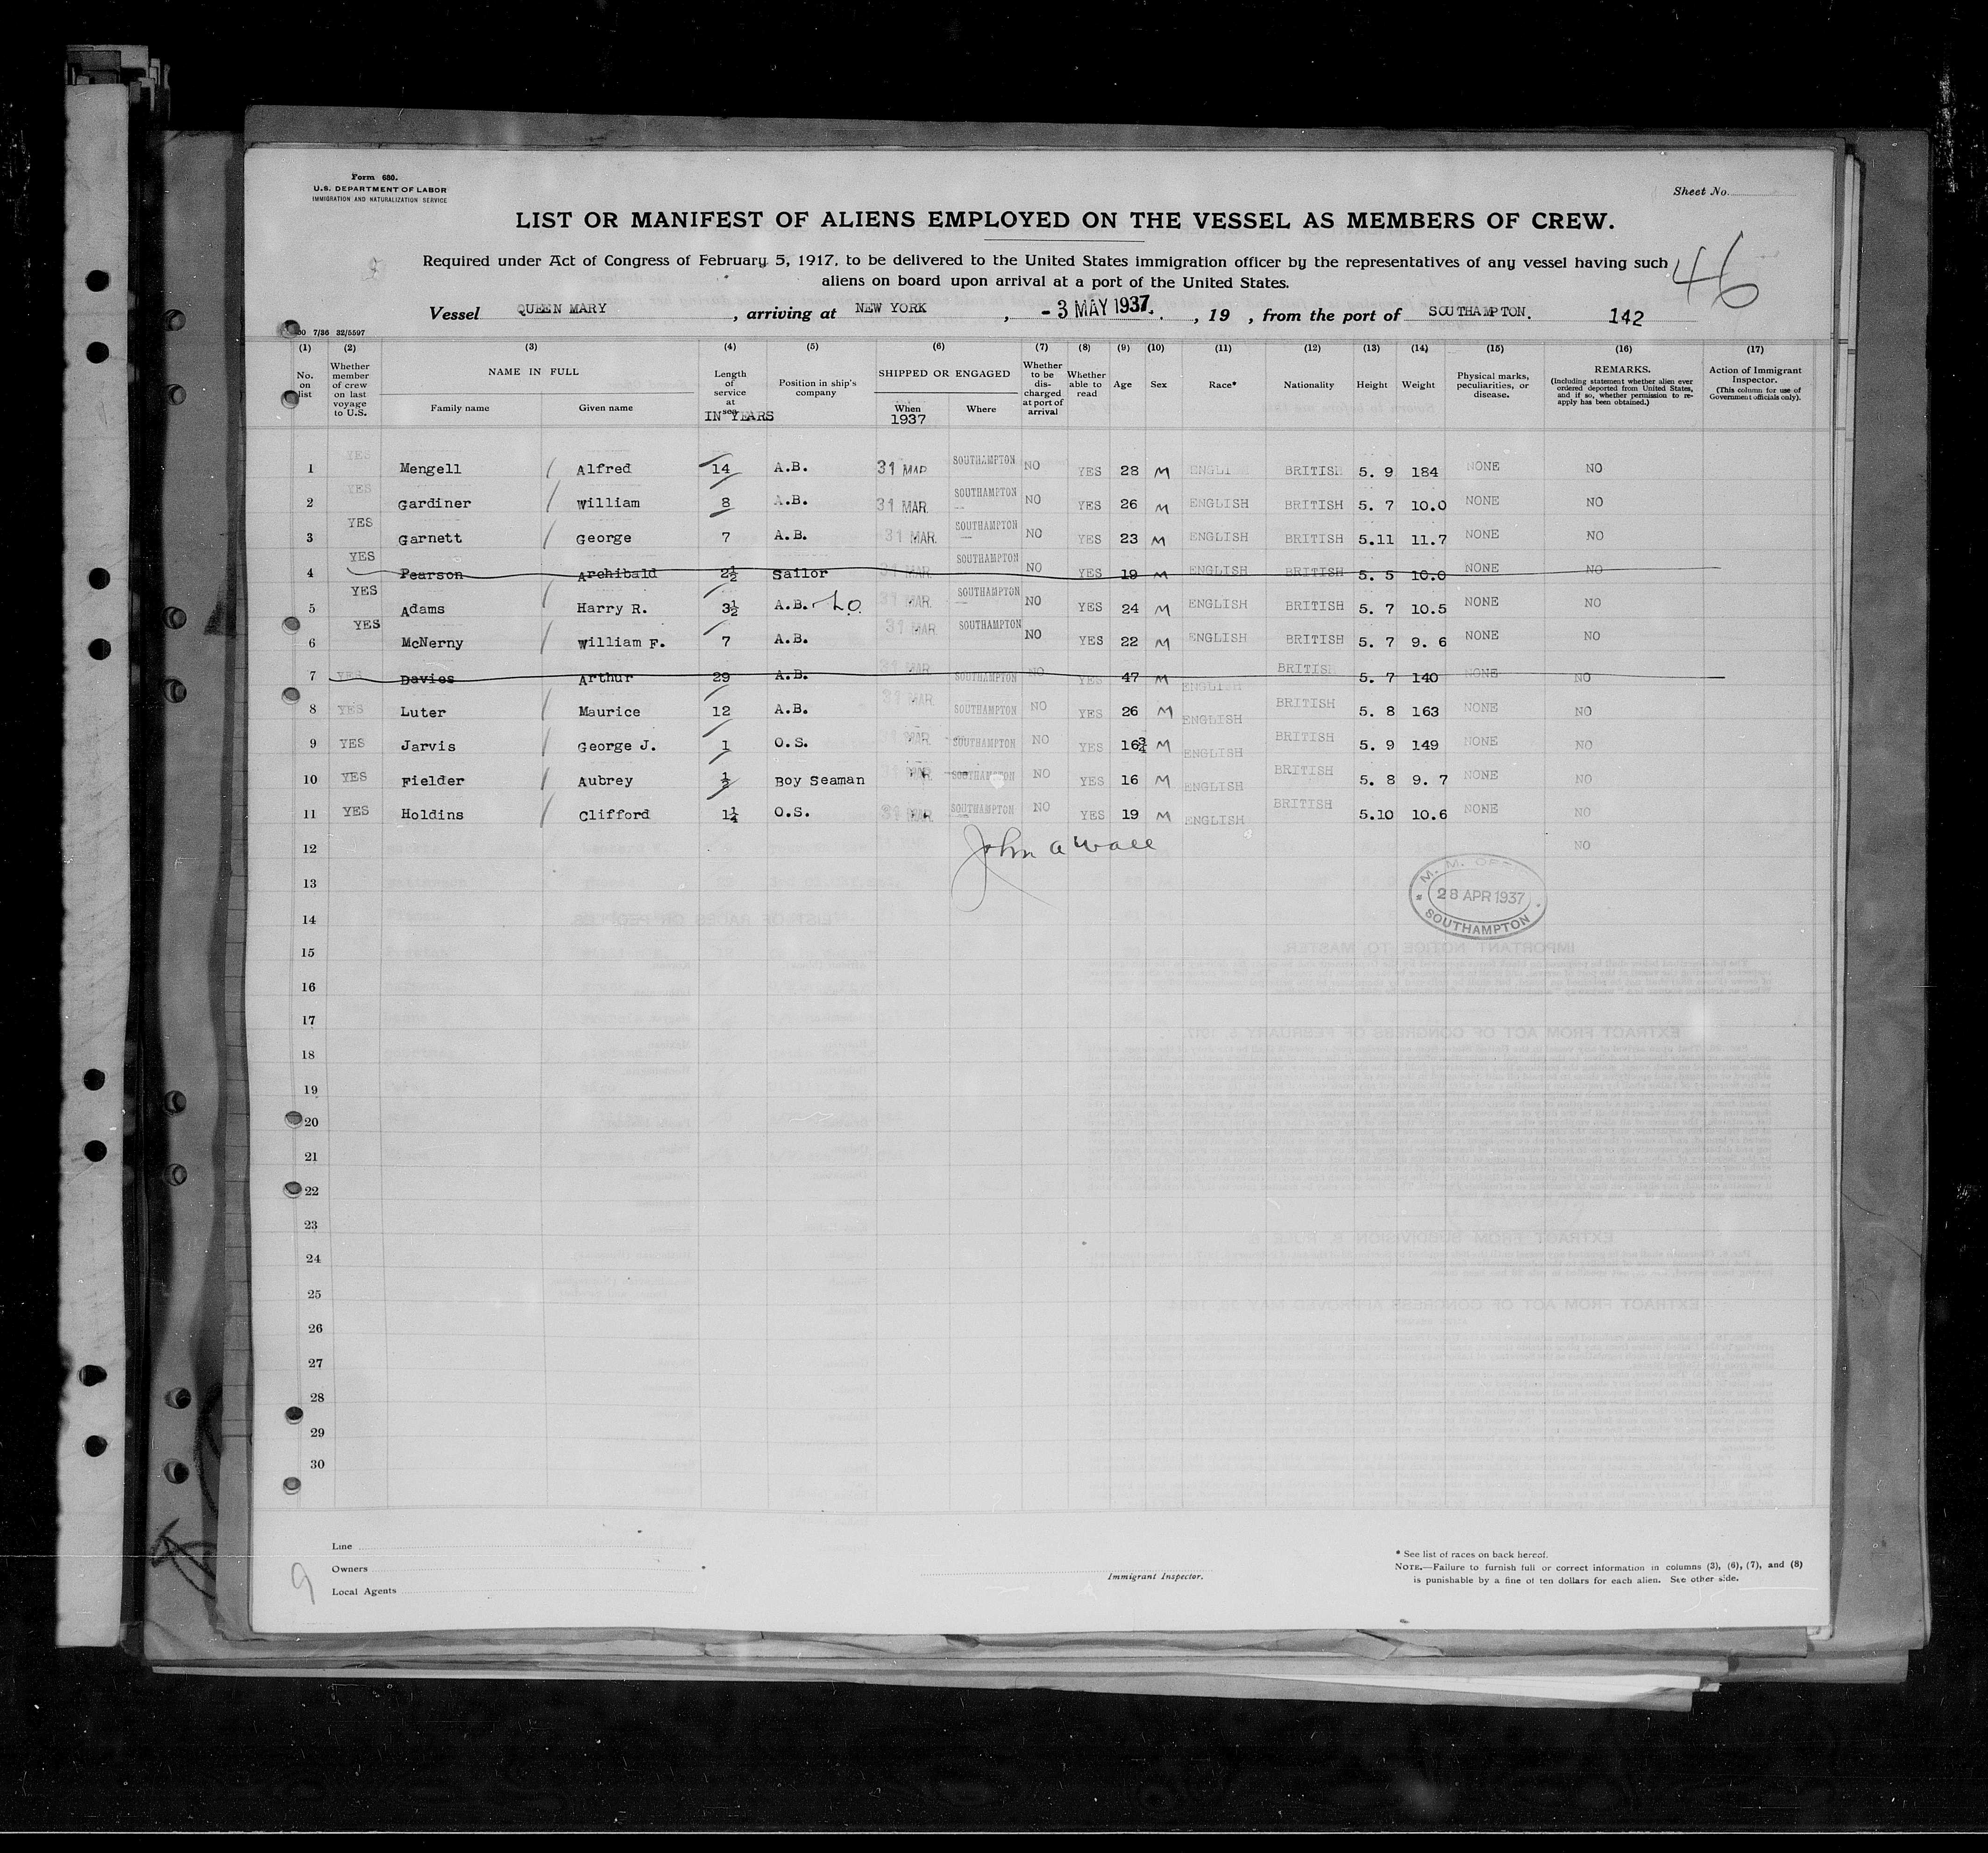 Form 680.
U.S. DEPARTMENT OF LABOR
IMMIGRATION AND NATURALIZATION SERVICE
Sheet No.
LIST OR MANIFEST OF ALIENS EMPLOYED ON THE VESSEL AS MEMBERS OF CREW.
Required under Act of Congress of February 5, 1917, to be delivered to the United States immigration officer by the representatives of any vessel having such
aliens on board upon arrival at a port of the United States.
46
Vessel QUEEN MARY, arriving at NEW YORK, - 3 MAY 1937., 19 , from the port of SOUTHAMPTON. 142
7/36 32/5597
(1) (2) (3) (4) (5) (6) (7) (8) (9) (10) (11) (12) (13) (14) (15) (16) (17)
No. on list
Whether member of crew on last voyage to U.S.
NAME IN FULL
Family name Given name
Length of service at sea IN YEARS
Position in ship's company
SHIPPED OR ENGAGED
When 1937 Where
Whether to be discharged at port of arrival
Whether able to read
Age
Sex
Race*
Nationality
Height
Weight
Physical marks, peculiarities, or disease.
REMARKS.
(Including statement whether alien ever ordered deported from United States, and if so, whether permission to reapply has been obtained.)
Action of Immigrant Inspector.
(This column for use of Government officials only).
1 YES Mengell Alfred 14 A.B. 31 MAR SOUTHAMPTON NO YES 28 M ENGLI BRITISH 5. 9 184 NONE NO
2 YES Gardiner William 8 A.B. 31 MAR. SOUTHAMPTON NO YES 26 M ENGLISH BRITISH 5. 7 10.0 NONE NO
3 YES Garnett George 7 A.B. 31 MAR. SOUTHAMPTON NO YES 23 M ENGLISH BRITISH 5.11 11.7 NONE NO
4 YES Pearson Archibald 2½ Sailor 31 MAR. SOUTHAMPTON NO YES 19 M ENGLISH BRITISH 5. 5 10.0 NONE NO
5 YES Adams Harry R. 3½ A.B. 31 MAR. SOUTHAMPTON NO YES 24 M ENGLISH BRITISH 5. 7 10.5 NONE NO
6 YES McNerny William F. 7 A.B. 31 MAR. SOUTHAMPTON NO YES 22 M ENGLISH BRITISH 5. 7 9. 6 NONE NO
7 YES Davies Arthur 29 A.B. 31 MAR. SOUTHAMPTON NO YES 47 M ENGLISH BRITISH 5. 7 140 NONE NO
8 YES Luter Maurice 12 A.B. 31 MAR. SOUTHAMPTON NO YES 26 M ENGLISH BRITISH 5. 8 163 NONE NO
9 YES Jarvis George J. 1 O.S. 31 MAR. SOUTHAMPTON NO YES 16¾ M ENGLISH BRITISH 5. 9 149 NONE NO
10 YES Fielder Aubrey ½ Boy Seaman 31 SOUTHAMPTON NO YES 16 M ENGLISH BRITISH 5. 8 9. 7 NONE NO
11 YES Holdins Clifford 1¼ O.S. 31 MAR. SOUTHAMPTON NO YES 19 M ENGLISH BRITISH 5.10 10.6 NONE NO
12 John A Wall NO
13
28 APR 1937
SOUTHAMPTON
14
15
16
17
18
19
20
21
22
23
24
25
26
27
28
29
30
9
Line
Owners
Local Agents
Immigrant Inspector.
* See list of races on back hereof.
NOTE.—Failure to furnish full or correct information in columns (3), (6), (7), and (8)
is punishable by a fine of ten dollars for each alien. See other side.